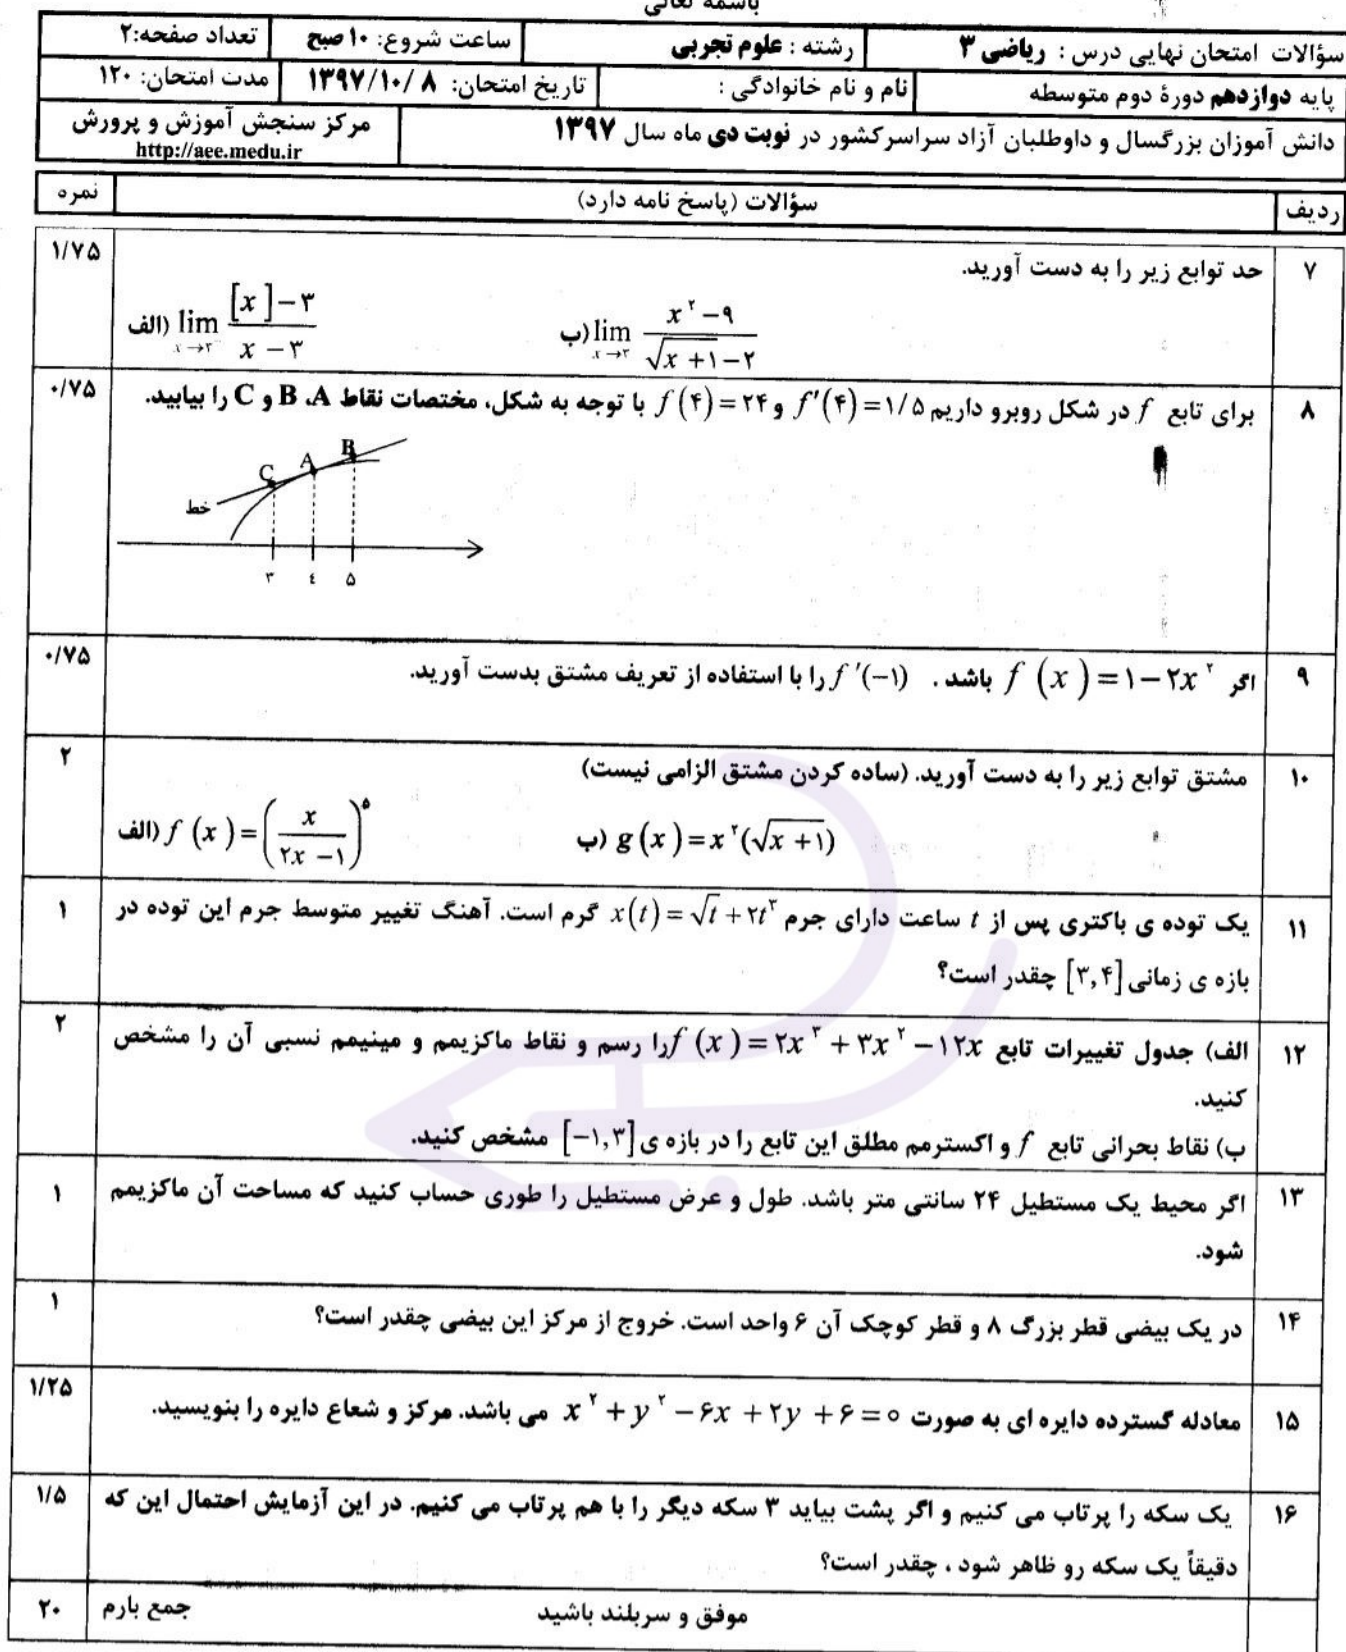 باسمه تعالی
سؤالات امتحان نهایی درس : ریاضی ۳ رشته : علوم تجربی ساعت شروع: ۱۰ صبح تعداد صفحه:۲
پایه دوازدهم دورهٔ دوم متوسطه نام و نام خانوادگی : تاریخ امتحان: ۸ /۱۳۹۷/۱۰ مدت امتحان: ۱۲۰
دانش آموزان بزرگسال و داوطلبان آزاد سراسرکشور در نوبت دی ماه سال ۱۳۹۷ مرکز سنجش آموزش و پرورش
http://aee.medu.ir
ردیف سؤالات (پاسخ نامه دارد) نمره
۷ حد توابع زیر را به دست آورید. ۱/۷۵
الف) lim x→۳⁻ ([x]−۳)/(x−۳) ب) lim x→۳ (x²−۹)/(√(x+۱)−۲)
۸ برای تابع f در شکل روبرو داریم f′(۴)=۱/۵ و f(۴)=۲۴ با توجه به شکل، مختصات نقاط A، B و C را بیابید. ۰/۷۵
C A B
خط
۳ ٤ ۵
۹ اگر f(x)=۱−۲x² باشد . f′(−۱) را با استفاده از تعریف مشتق بدست آورید. ۰/۷۵
۱۰ مشتق توابع زیر را به دست آورید. (ساده کردن مشتق الزامی نیست) ۲
الف) f(x)=(x/(۲x−۱))^۵ ب) g(x)=x²(√(x+۱))
۱۱ یک توده ی باکتری پس از t ساعت دارای جرم x(t)=√t+۲t³ گرم است. آهنگ تغییر متوسط جرم این توده در ۱
بازه ی زمانی [۳,۴] چقدر است؟
۱۲ الف) جدول تغییرات تابع f(x)=۲x³+۳x²−۱۲x را رسم و نقاط ماکزیمم و مینیمم نسبی آن را مشخص ۲
کنید.
ب) نقاط بحرانی تابع f و اکسترمم مطلق این تابع را در بازه ی [−۱,۳] مشخص کنید.
۱۳ اگر محیط یک مستطیل ۲۴ سانتی متر باشد. طول و عرض مستطیل را طوری حساب کنید که مساحت آن ماکزیمم ۱
شود.
۱۴ در یک بیضی قطر بزرگ ۸ و قطر کوچک آن ۶ واحد است. خروج از مرکز این بیضی چقدر است؟ ۱
۱۵ معادله گسترده دایره ای به صورت x²+y²−۶x+۲y+۶=۰ می باشد. مرکز و شعاع دایره را بنویسید. ۱/۲۵
۱۶ یک سکه را پرتاب می کنیم و اگر پشت بیاید ۳ سکه دیگر را با هم پرتاب می کنیم. در این آزمایش احتمال این که ۱/۵
دقیقاً یک سکه رو ظاهر شود ، چقدر است؟
موفق و سربلند باشید جمع بارم ۲۰